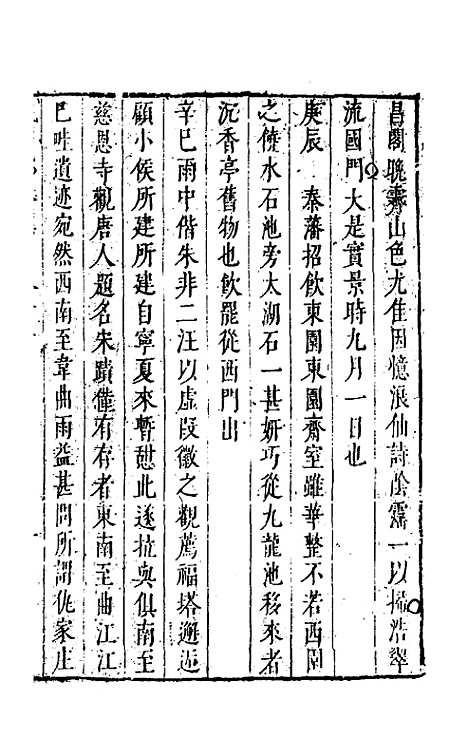 昌閣晚霽山色尤佳因憶浪仙詩陰靄一以掃浩翠
流國門大是實景時九月一日也
庚辰　秦藩招飲東園東園齋室雖華整不若西園
之饒水石池旁太湖石一甚妍巧從九龍池移來者
沉香亭舊物也飲罷從西門出
辛巳雨中偕朱非二汪以虛段徽之觀薦福塔邂逅
顧小侯所建所建自寧夏來暫憩此遂拉與俱南至
慈恩寺觀唐人題名朱蹟僅有存者東南至曲江江
已哇遺迹宛然西南至韋曲雨益甚問所謂仇家庄